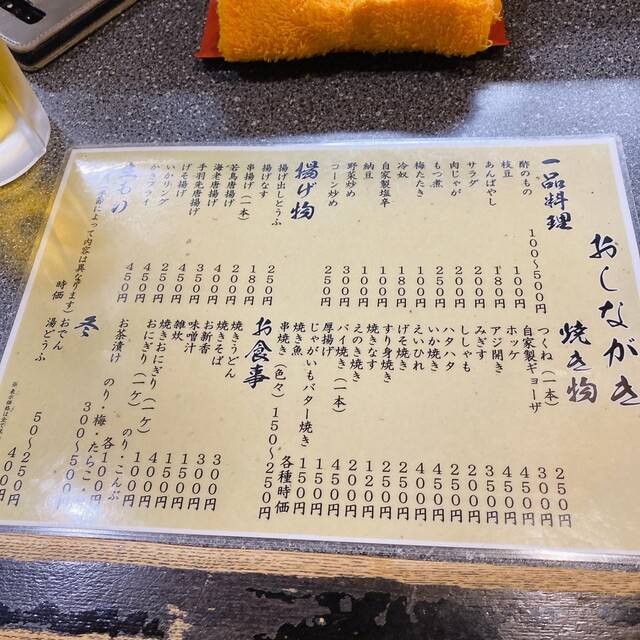 おしながき
一品料理
酢のもの 100〜500円
枝豆 100円
あんばやし 180円
サラダ 200円
肉じゃが 200円
もつ煮 250円
梅たたき 100円
冷奴 180円
自家製塩辛 100円
納豆 100円
野菜炒め 300円
コーン炒め 250円
揚げ物
揚げ出しとうふ 250円
揚げなす 180円
串揚げ（一本） 200円
若鳥唐揚げ 400円
海老唐揚げ 350円
手羽先唐揚げ 450円
げそ揚げ 250円
いかリング 450円
フライ 450円
もの
によって内容は異なります） 時価
焼き物
つくね（一本） 250円
自家製ギョーザ 300円
ホッケ 450円
アジ開き 450円
みぎす 350円
ししゃも 200円
ハタハタ 250円
いか焼き 450円
えいひれ 400円
げそ焼き 250円
すり身焼き 200円
焼きなす 120円
えのき焼き 200円
バイ焼き（一本） 450円
厚揚げ 150円
じゃがいもバター焼き 150円
焼き魚 各種時価
串焼き（色々）150〜250円
お食事
焼きうどん 300円
焼きそば 300円
お新香
味噌汁 150円
雑炊
焼きおにぎり（一ケ）
おにぎり（一ケ） のり・こんぶ 100円
お茶漬け のり・梅・たらこ・ 各100円
300〜500円
冬
おでん 50〜250円
湯どうふ 400円